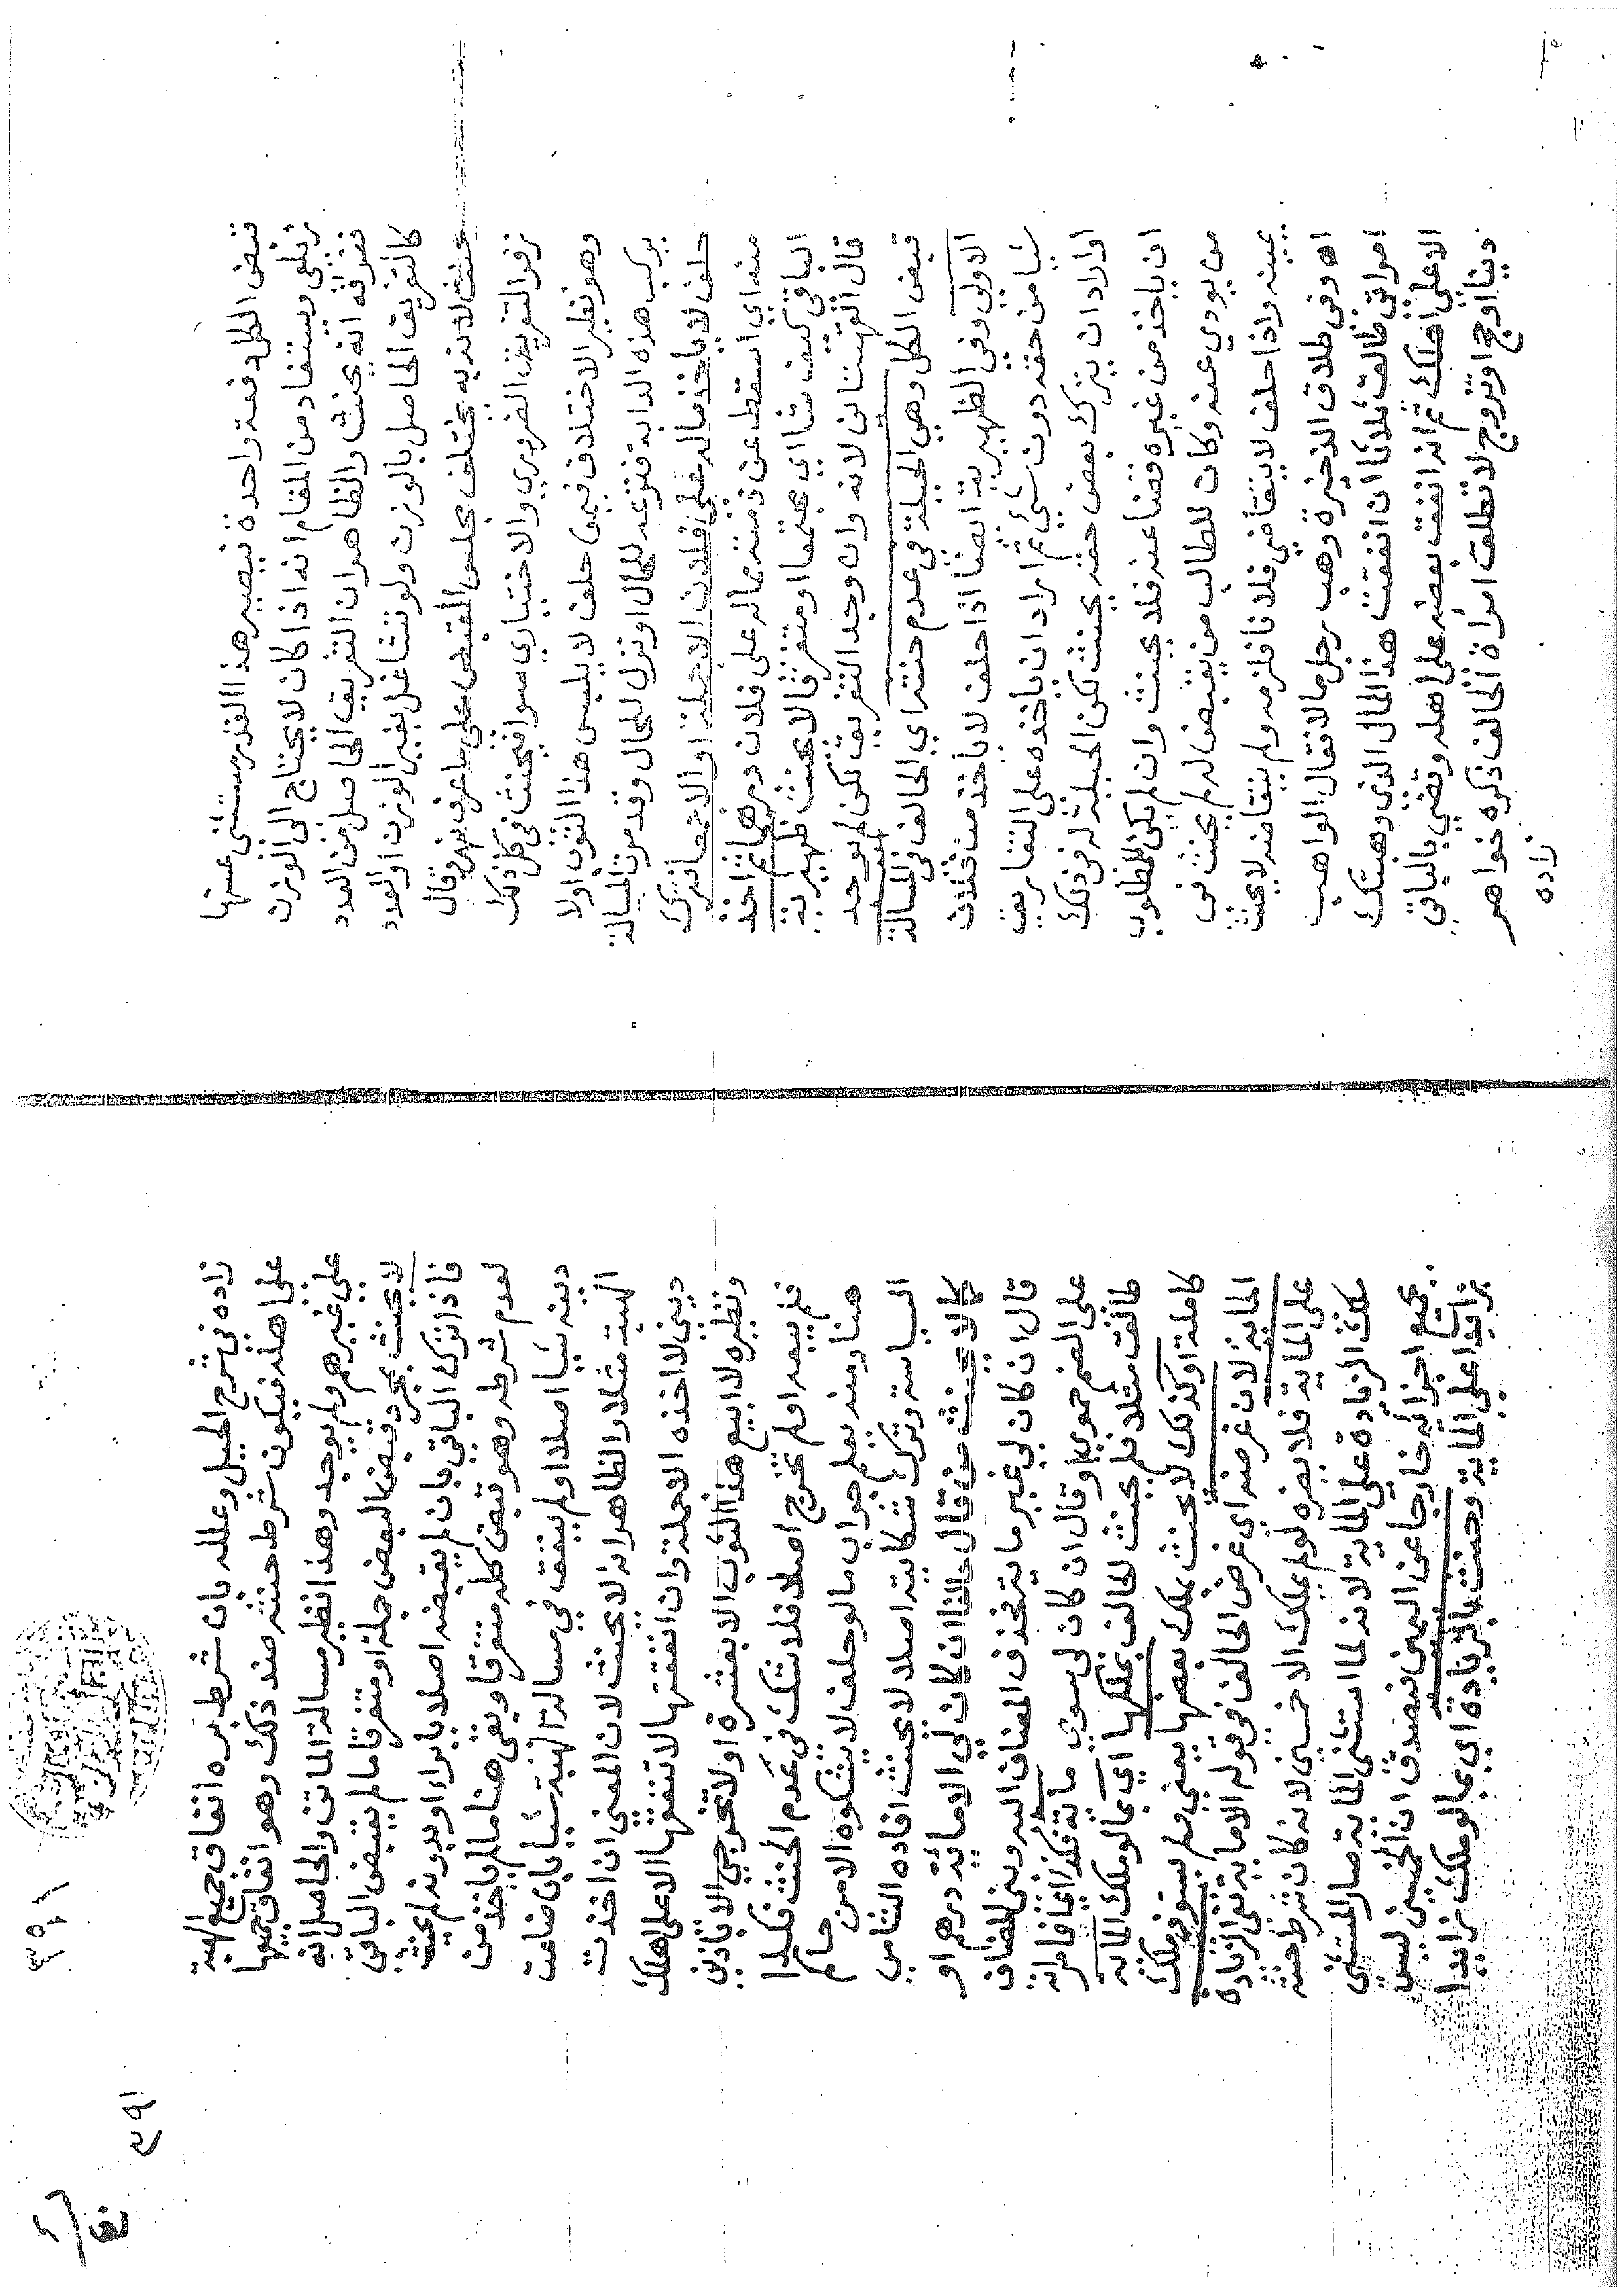 قبض الكل دفعة واحدة فيصير هذا القدر مستثنى عنها
زيلعي ويستفاد من المقام انه اذا كان لايحتاج الى الوزن
ففرقه انه يحنث والظاهر ان التفريق الحاصل من العدد
كالتفريق الحاصل بالوزن ولو تشاغل بغير الوزن او العدد
حنث لانه به يختلف مجلس القبض على ما عرف نهر وقال
زفر التفريق الضروري والاختياري سوا فيحنث في كل ذلك
وهو نظير الاختلاف فيمن حلف لا يلبس هذا الثوب او لا
يركب هذه الدابة فنزعه للحال او نزل للحال وقد مرت المسالة
حلف لا ياخذ ماله على فلان الا جملة او الا جمعا فترك
منه اي اسقط عن ذمته مما له على فلان درهما ثم اخذ
الباقي كيف شا اي مجتمعا او متفرقا لا يحنث ظهيرية
قال القهستاني لانه وان وجد التفريق لكن لم يوجد
قبض الكل وهي الحيلة في عدم حنثه اي الحالف في المسالة
الاولى وفي الظهيرية ايضا اذا حلف لا ياخذ من فلان
شيا من حقه دون شيء ثم اراد ان ياخذه على التفاريق
او اراد ان يترك بعض حقه يحنث لكن الحيلة له في ذلك
ان ياخذ من غيره قضا عنه فلا يحنث وان لم يكن للمطلوب
من يودي عنه وكان للطالب من يقبض له لم يحنث في
يمينه واذا حلف لا يتقاضي فلانا فلزمه ولم يتقاضه لا يحنث
اه وفي طلاق الذخيرة وهب رجل مالا فقال الواهب
امراتي طالق ثلاثا ان انفقت هذا المال الذي وهبتك
الا على اهلك ثم انه انفق بعضه على اهله وقضي بالباقي
دينا او حج او تزوج لا تطلق امراة الحالف ذكره خواهر
زاده
زاده في شرح الحيل وعلله بان شرط بره انفاق جميع الهبة
على اهله فيكون شرط حنثه ضد ذلك وهو انفاق جميعها
على غيرهم ولم يوجد وهذا نظير مسالة الماتن والحاصل انه
لا يحنث بمجرد قبض البعض جملة او متفرقا ما لم يقبض الباقي
فاذا ترك الباقي بان لم يقبضه اصلا بابراء او بدونه لم يحنث
لعدم شرطه وهو قبض كله متفرقا وبقي هنا ما لم ياخذ من
دينه شيا اصلا او لم ينفق في مسالة الهبة شيا بان ضاعت
الهبة مثلا والظاهر انه لا يحنث لان المعنى ان اخذت
ديني لا اخذه الا جملة وان انفقتها لا تنفقها الا على اهلك
ونظيره لا ابيع هذا الثوب الا بعشرة او لا تخرجي الا باذني
فلم يبعه او لم تخرج اصلا فلا شك في عدم الحنث فكذا
هنا ومنه يعلم جواب ما لو حلف لا يشكوه الا من حاكم
السياسة وترك شكايته اصلا لا يحنث افاده الشامي
كما لا يحنث من قال حالفا ان كان لي الا مائة درهم او
قال ان كان لي غير ماية بحذف المضاف اليه وبنى المضاف
على الضم حموي او قال ان كان لي سوى ماية فكذا اي فامراته
طالق مثلا فلم يحنث الحالف بملكها اي بما لو ملك الماية
كاملة او كذلك لا يحنث بملك بعضها يعني ولم يستوف ملك
الماية لان غرضه اي غرض الحالف في قوله الا ماية نفي الزيادة
على الماية فلا يضره لو لم يملك الا خمسين لانه كان شرط حنثه
ملك الزيادة على الماية لانه لما استثنى الماية صار المستثنى
بجميع اجزائه خارجا عن اليمين فيصدق ان الخمسين ليس
زايدا على الماية وحنث بالزيادة اي بما لو ملك زايدا
٣٩١